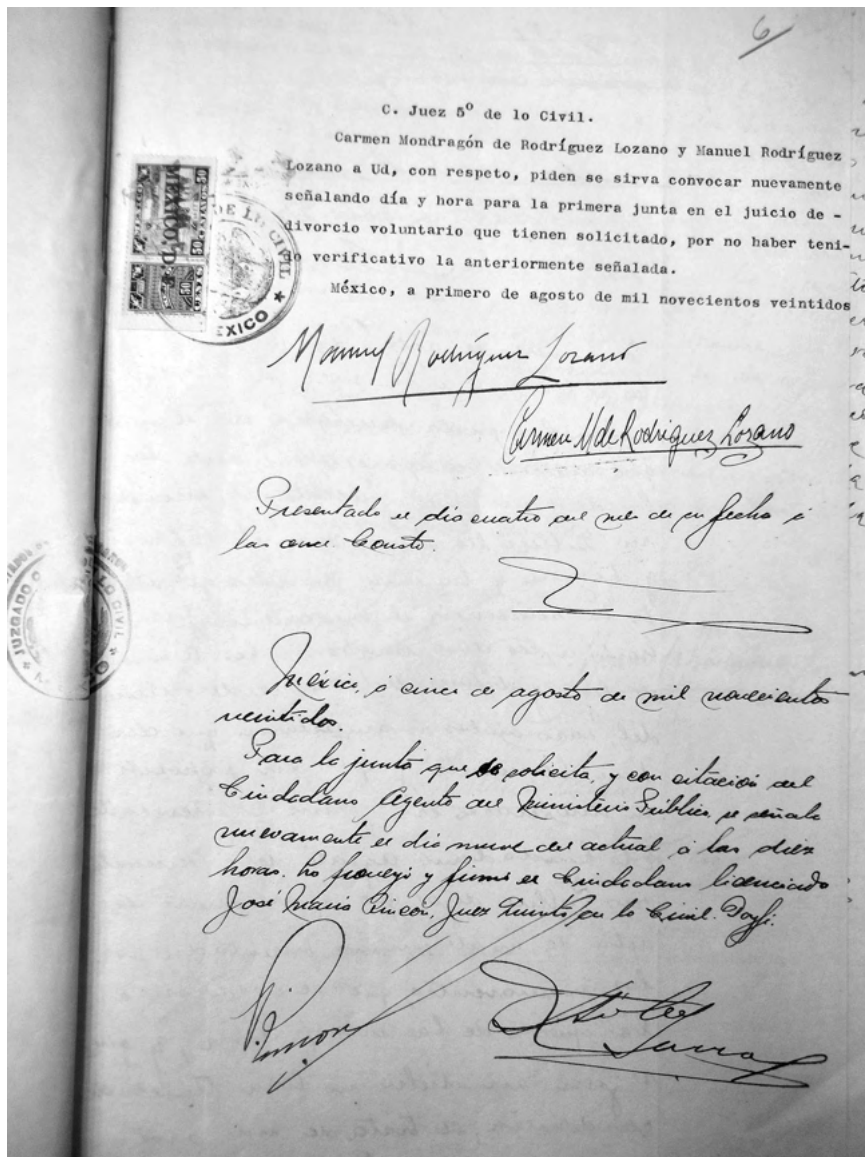 6
C. Juez 5º de lo Civil.
Carmen Mondragón de Rodríguez Lozano y Manuel Rodríguez
Lozano a Ud, con respeto, piden se sirva convocar nuevamente
señalando día y hora para la primera junta en el juicio de -
divorcio voluntario que tienen solicitado, por no haber teni-
do verificativo la anteriormente señalada.
México, a primero de agosto de mil novecientos veintidos
MEXICO, D. F.
50 CENTAVOS 50
DE LO CIVIL
MEXICO
Manuel Rodríguez Lozano
Carmen M de Rodriguez Lozano
Presentado el día cuatro del mes de su fecha á
las once Consto.
JUZGADO LO CIVIL
México, á cinco de agosto de mil novecientos
veintidos.
Para la junta que se solicita, y con citación del
Ciudadano Agente del Ministerio Público, se señala
nuevamente el día nueve del actual, á las diez
horas. Lo proveyó y firmó el Ciudadano licenciado
José María Rincón, Juez Quinto de lo Civil. Doyfé.
Rincon